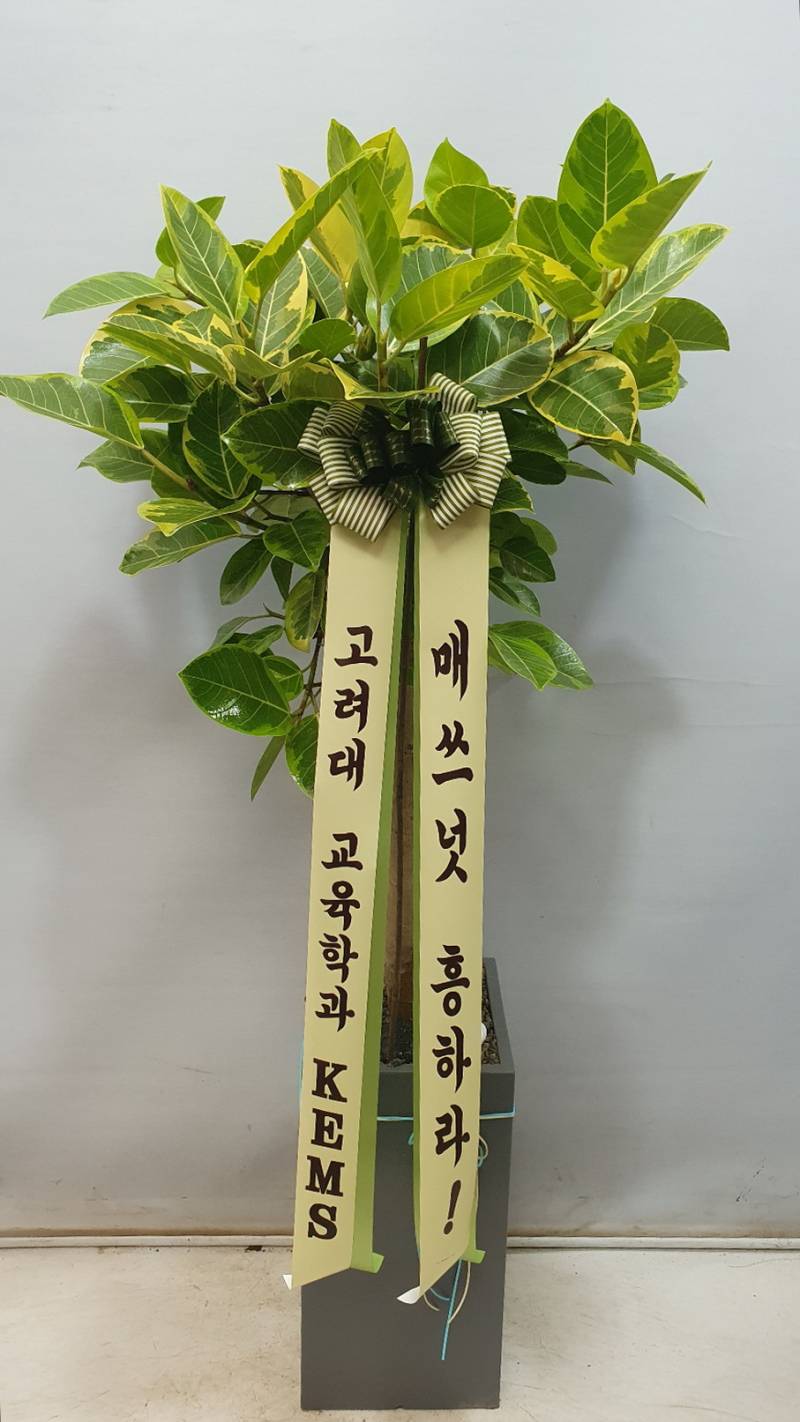 고려대 교육학과 KEMS
매쓰넛 흥하라!